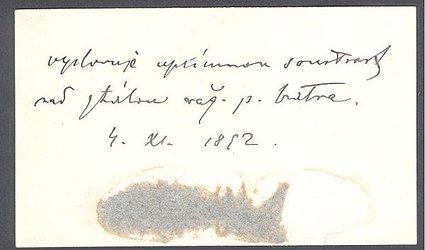 vyslovuje upřímnou soustrast
nad ztrátou váž. p. bratra.
4. XI. 1892.